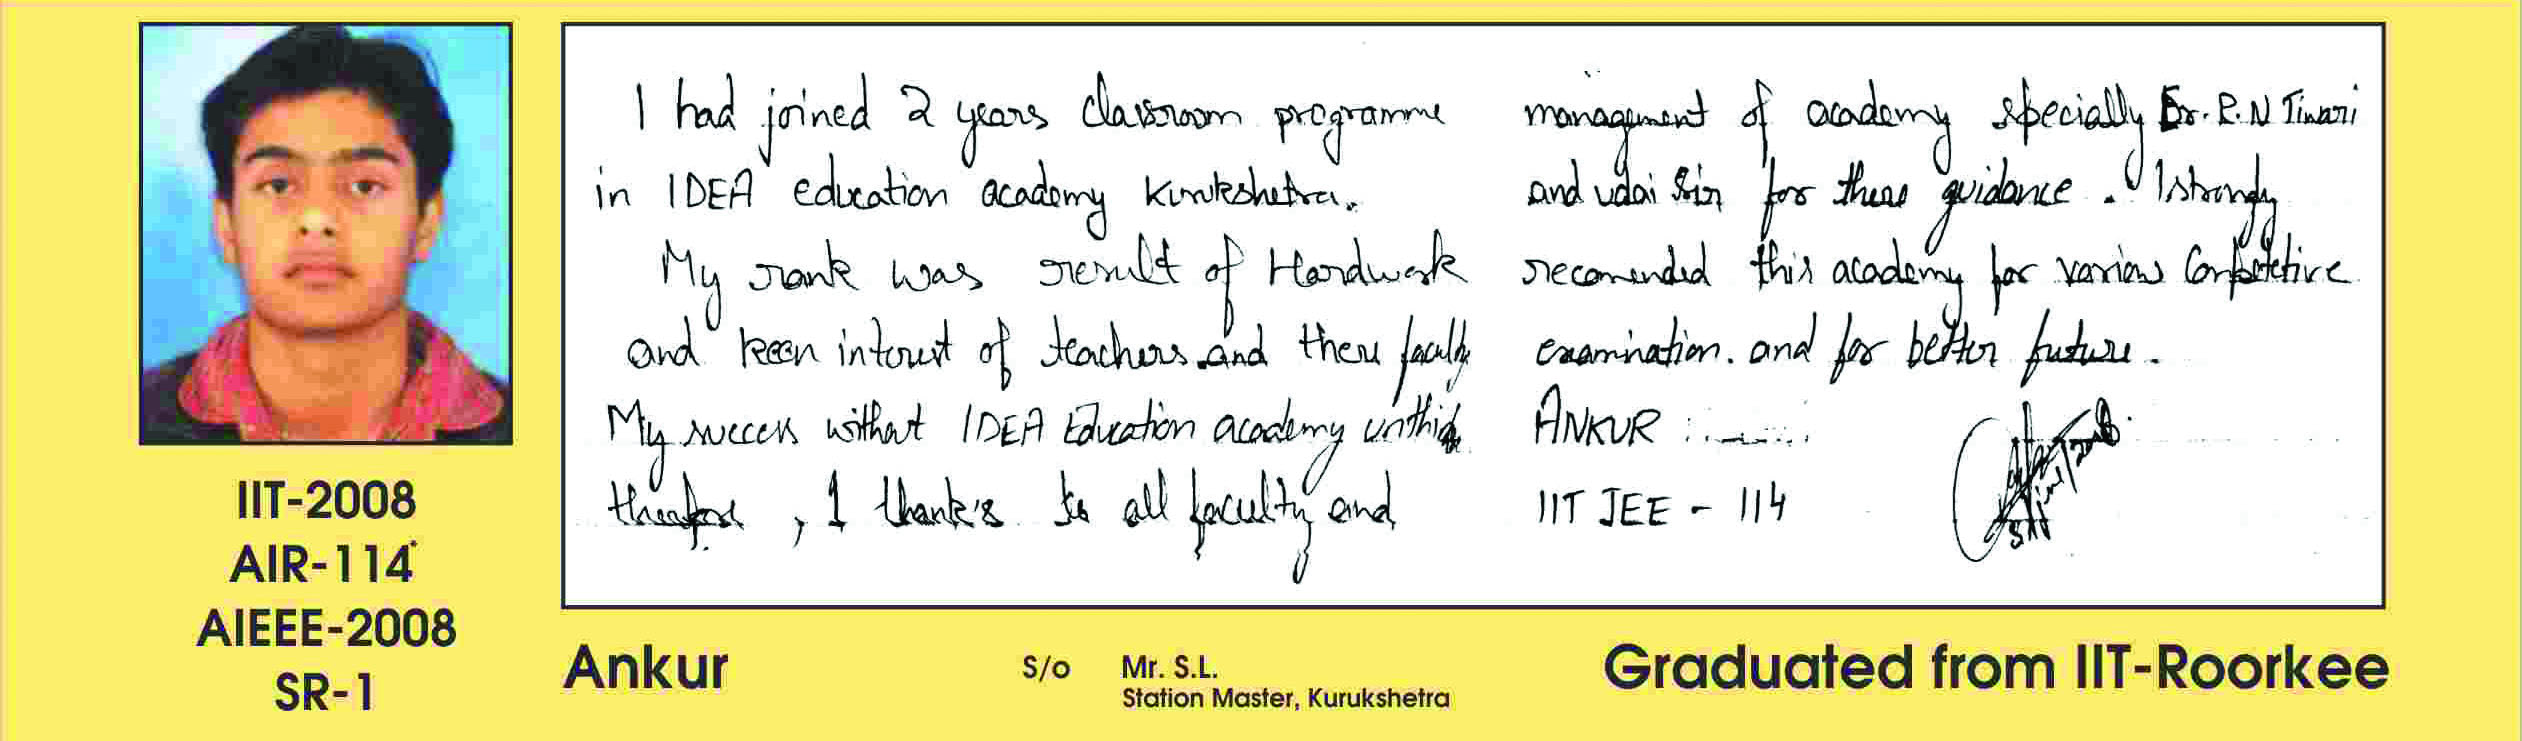 I had joined 2 years classroom programme
in IDEA education academy Kurukshetra.
My rank was result of Hardwork
and keen interest of teachers and there faculty
My success without IDEA Education academy unthink
therefore , I thank's to all faculty and
management of academy specially Er. R.N Tiwari
and udai Sir for there guidance . I strongly
recomended this academy for various Competetive
examination. and for better future .
ANKUR
IIT JEE - 114
IIT-2008
AIR-114*
AIEEE-2008
SR-1
Ankur S/o Mr. S.L.
Station Master, Kurukshetra
Graduated from IIT-Roorkee